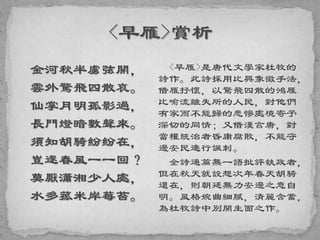 <早雁>賞析
金河秋半虜弦開，
雲外驚飛四散哀。
仙掌月明孤影過，
長門燈暗數聲來。
須知胡騎紛紛在，
豈逐春風一一回？
莫厭瀟湘少人處，
水多菰米岸莓苔。
<早雁>是唐代文學家杜牧的
詩作。此詩採用比興象徵手法，
借雁抒懷，以驚飛四散的鴻雁
比喻流離失所的人民，對他們
有家而不能歸的悲慘處境寄予
深切的同情；又借漢言唐，對
當權統治者昏庸腐敗，不能守
邊安民進行諷刺。
全詩通篇無一語批評執政者，
但在秋天就設想次年春天胡騎
還在，則朝廷無力安邊之意自
明。風格婉曲細膩，清麗含蓄，
為杜牧詩中別開生面之作。